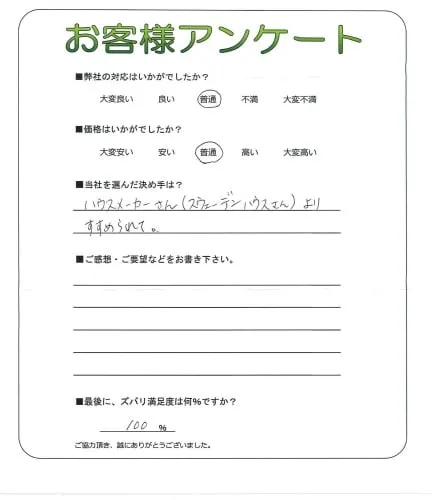 お客様アンケート
■弊社の対応はいかがでしたか?
大変良い 良い 普通 不満 大変不満
■価格はいかがでしたか?
大変安い 安い 普通 高い 大変高い
■当社を選んだ決め手は?
ハウスメーカーさん(スウェーデンハウスさん)より
すすめられて。
■ご感想・ご要望などをお書き下さい。
■最後に、ズバリ満足度は何%ですか?
100 %
ご協力頂き、誠にありがとうございました。